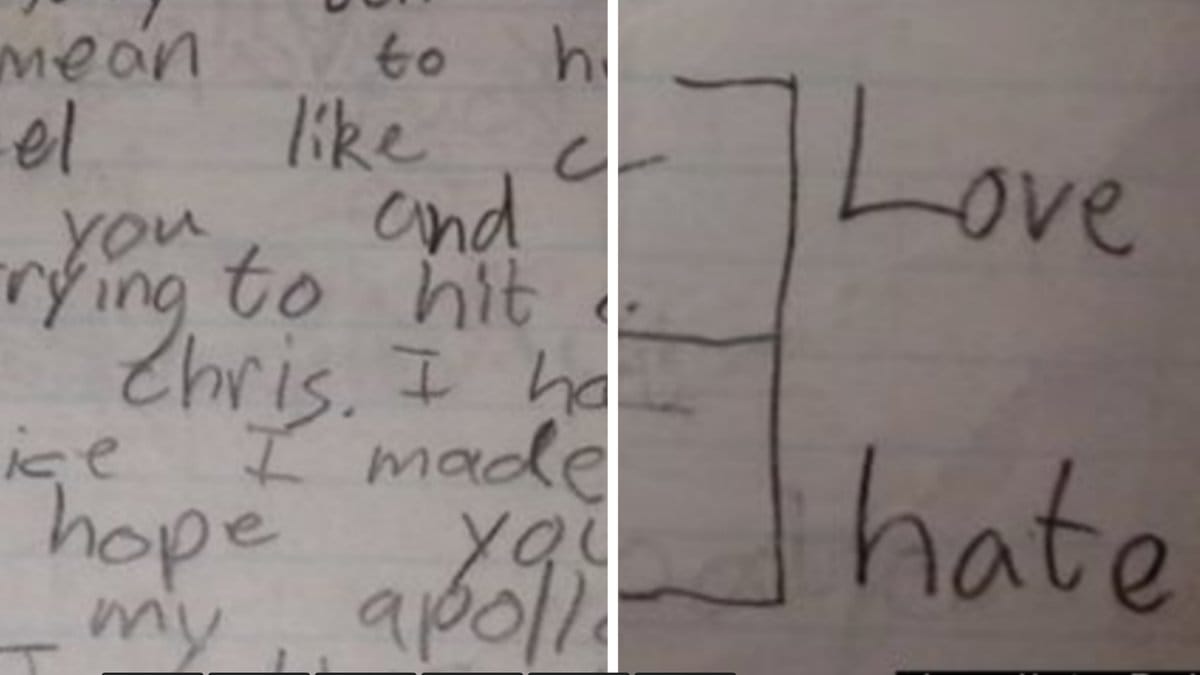 mean to h
el like c
you and
rying to hit
chris. I ha
ice I made
hope you
my apollo
Love
hate